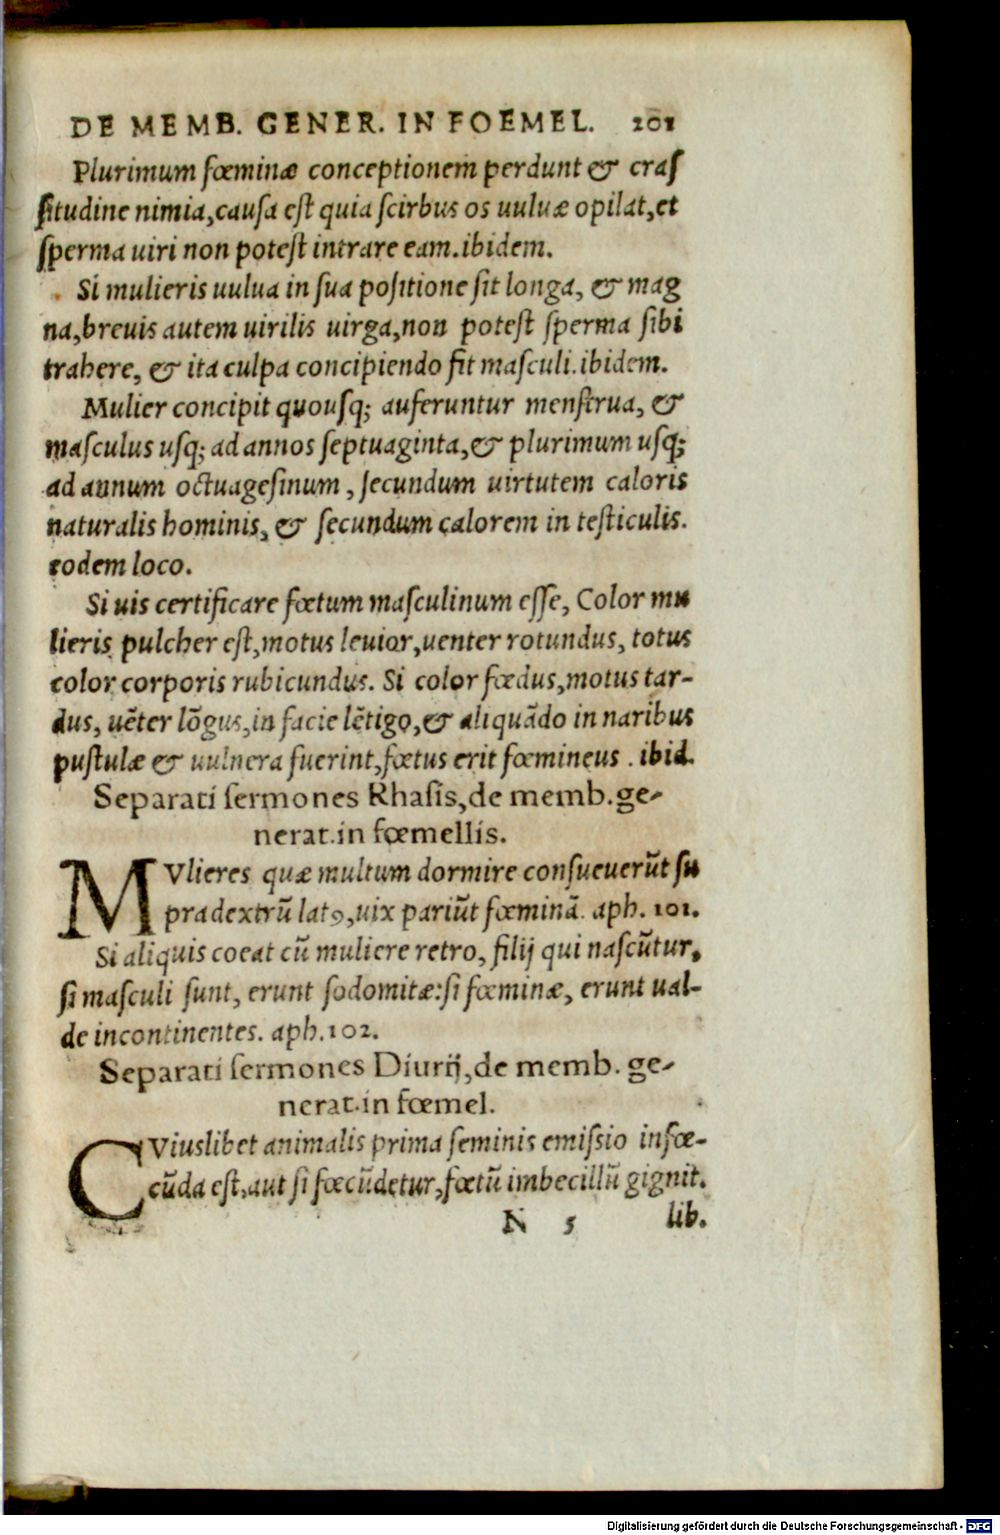 DE MEMB. GENER. IN FOEMEL. 201
Plurimum fœminæ conceptionem perdunt & craſ
ſitudine nimia, cauſa eſt quia ſcirbus os uuluæ opilat, et
ſperma uiri non poteſt intrare eam. ibidem.
Si mulieris uulua in ſua poſitione ſit longa, & mag
na, breuis autem uirilis uirga, non poteſt ſperma ſibi
trahere, & ita culpa concipiendo fit maſculi. ibidem.
Mulier concipit quouſq; auferuntur menſtrua, &
maſculus uſq; ad annos ſeptuaginta, & plurimum uſq;
ad annum octuageſinum, ſecundum uirtutem caloris
naturalis hominis, & ſecundum calorem in teſticulis.
eodem loco.
Si uis certificare fœtum maſculinum eſſe, Color mu
lieris pulcher eſt, motus leuior, uenter rotundus, totus
color corporis rubicundus. Si color fœdus, motus tar-
dus, uẽter lõgus, in facie lẽtigo, & aliquãdo in naribus
puſtulæ & uulnera fuerint, fœtus erit fœmineus. ibid.
Separati ſermones Rhaſis, de memb. ge-
nerat. in fœmellis.
MVlieres quæ multum dormire conſueuerũt ſu
pra dextrũ latꝰ, uix pariũt fœminã. aph. 101.
Si aliquis coeat cũ muliere retro, filij qui naſcũtur,
ſi maſculi ſunt, erunt ſodomitæ: ſi fœminæ, erunt ual-
de incontinentes. aph. 102.
Separati ſermones Diurij, de memb. ge-
nerat. in fœmel.
CViuslibet animalis prima ſeminis emiſsio infœ-
cũda eſt, aut ſi fœcũdetur, fœtũ imbecillũ gignit.
N 5 lib.
Digitalisierung gefördert durch die Deutsche Forschungsgemeinschaft - DFG